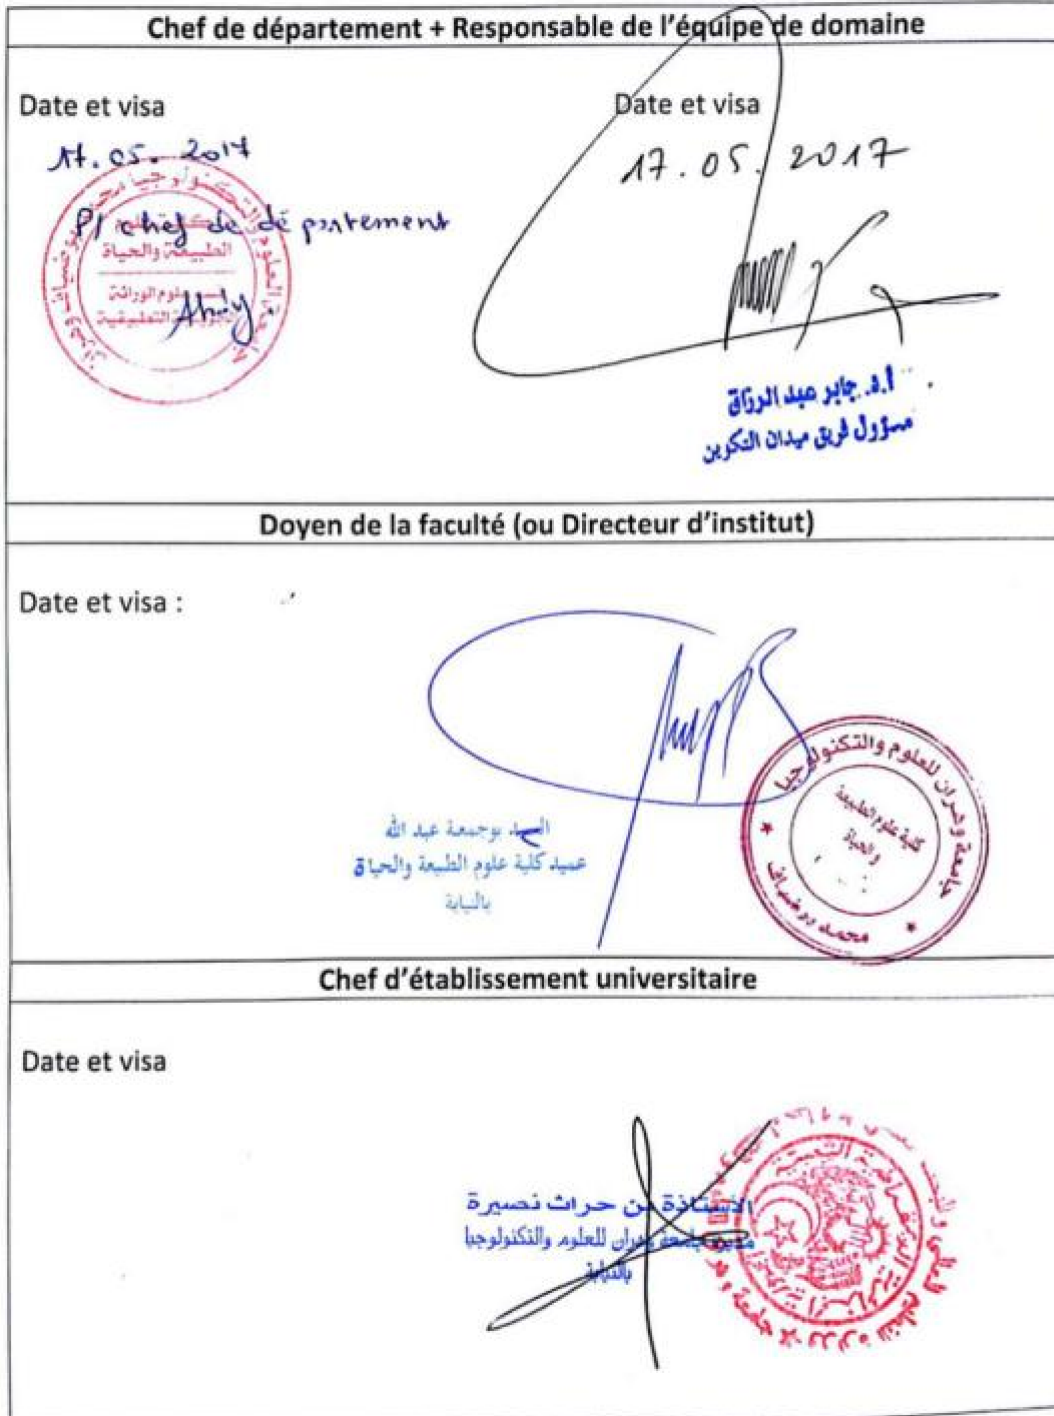 Chef de département + Responsable de l'équipe de domaine
Date et visa
Date et visa
17.05.2017
17.05.2017
P/ chef de département
الطبيعة والحياة
أ.د. جابر عبد الرزاق
مسؤول فريق ميدان التكوين
Doyen de la faculté (ou Directeur d'institut)
Date et visa :
السيد بوجمعة عبد الله
عميد كلية علوم الطبيعة والحياة
بالنيابة
جامعة وهران للعلوم والتكنولوجيا
محمد بوضياف
كلية علوم الطبيعة
والحياة
Chef d'établissement universitaire
Date et visa
الأستاذة بن حراث نصيرة
مدير جامعة وهران للعلوم والتكنولوجيا
بالنيابة